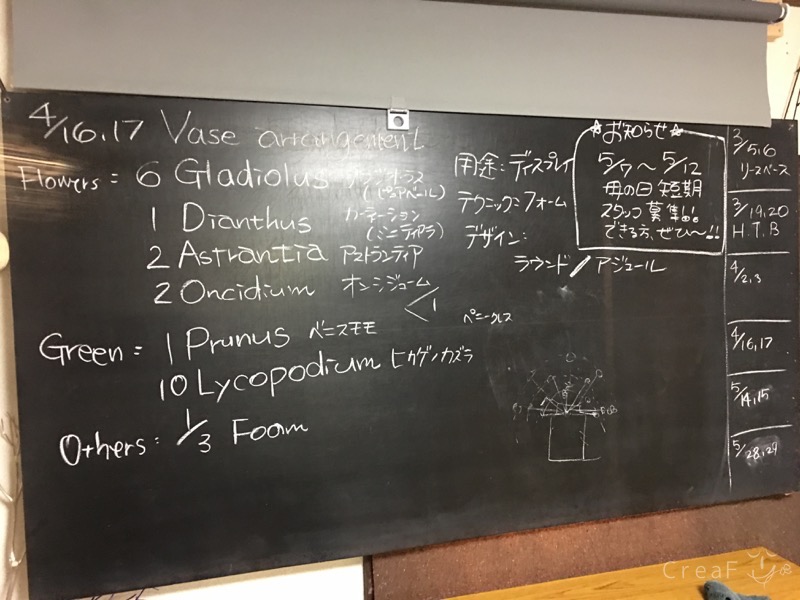 4/16,17 Vase arrangement
Flowers = 6 Gladiolus グラジオラス
(ピュアベール)
1 Dianthus カーネーション
(ミニティアラ)
2 Astrantia アストランティア
2 Oncidium オンシジューム
1
ペニークレス
Green = 1 Prunus ベニスモモ
10 Lycopodium ヒカゲノカズラ
Others = 1/3 Foam
用途: ディスプレイ
テクニック: フォーム
デザイン:
ラウンド / アジュール
☆お知らせ☆
5/7〜5/12
母の日短期
スタッフ募集中。
できる方、ぜひ〜!!
3/5,6
リースベース
3/19,20
H.T.B
4/2,3
4/16,17
5/14,15
5/28,29
CreaF